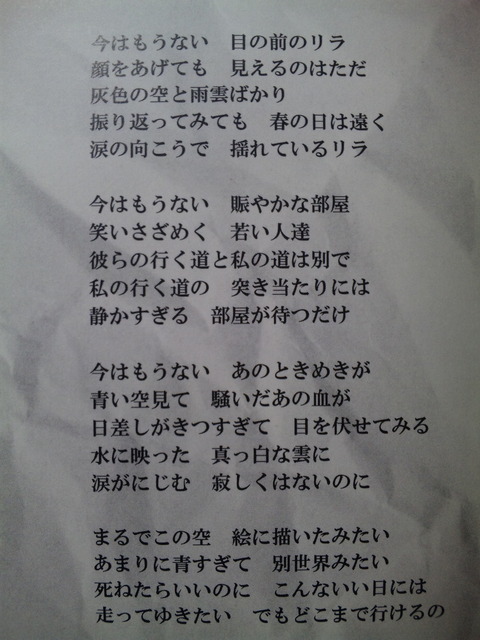 今はもうない　目の前のリラ
顔をあげても　見えるのはただ
灰色の空と雨雲ばかり
振り返ってみても　春の日は遠く
涙の向こうで　揺れているリラ
今はもうない　賑やかな部屋
笑いさざめく　若い人達
彼らの行く道と私の道は別で
私の行く道の　突き当たりには
静かすぎる　部屋が待つだけ
今はもうない　あのときめきが
青い空見て　騒いだあの血が
日差しがきつすぎて　目を伏せてみる
水に映った　真っ白な雲に
涙がにじむ　寂しくはないのに
まるでこの空　絵に描いたみたい
あまりに青すぎて　別世界みたい
死ねたらいいのに　こんないい日には
走ってゆきたい　でもどこまで行けるの